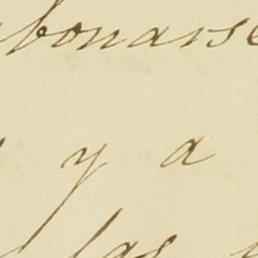 abonarse
y a
las